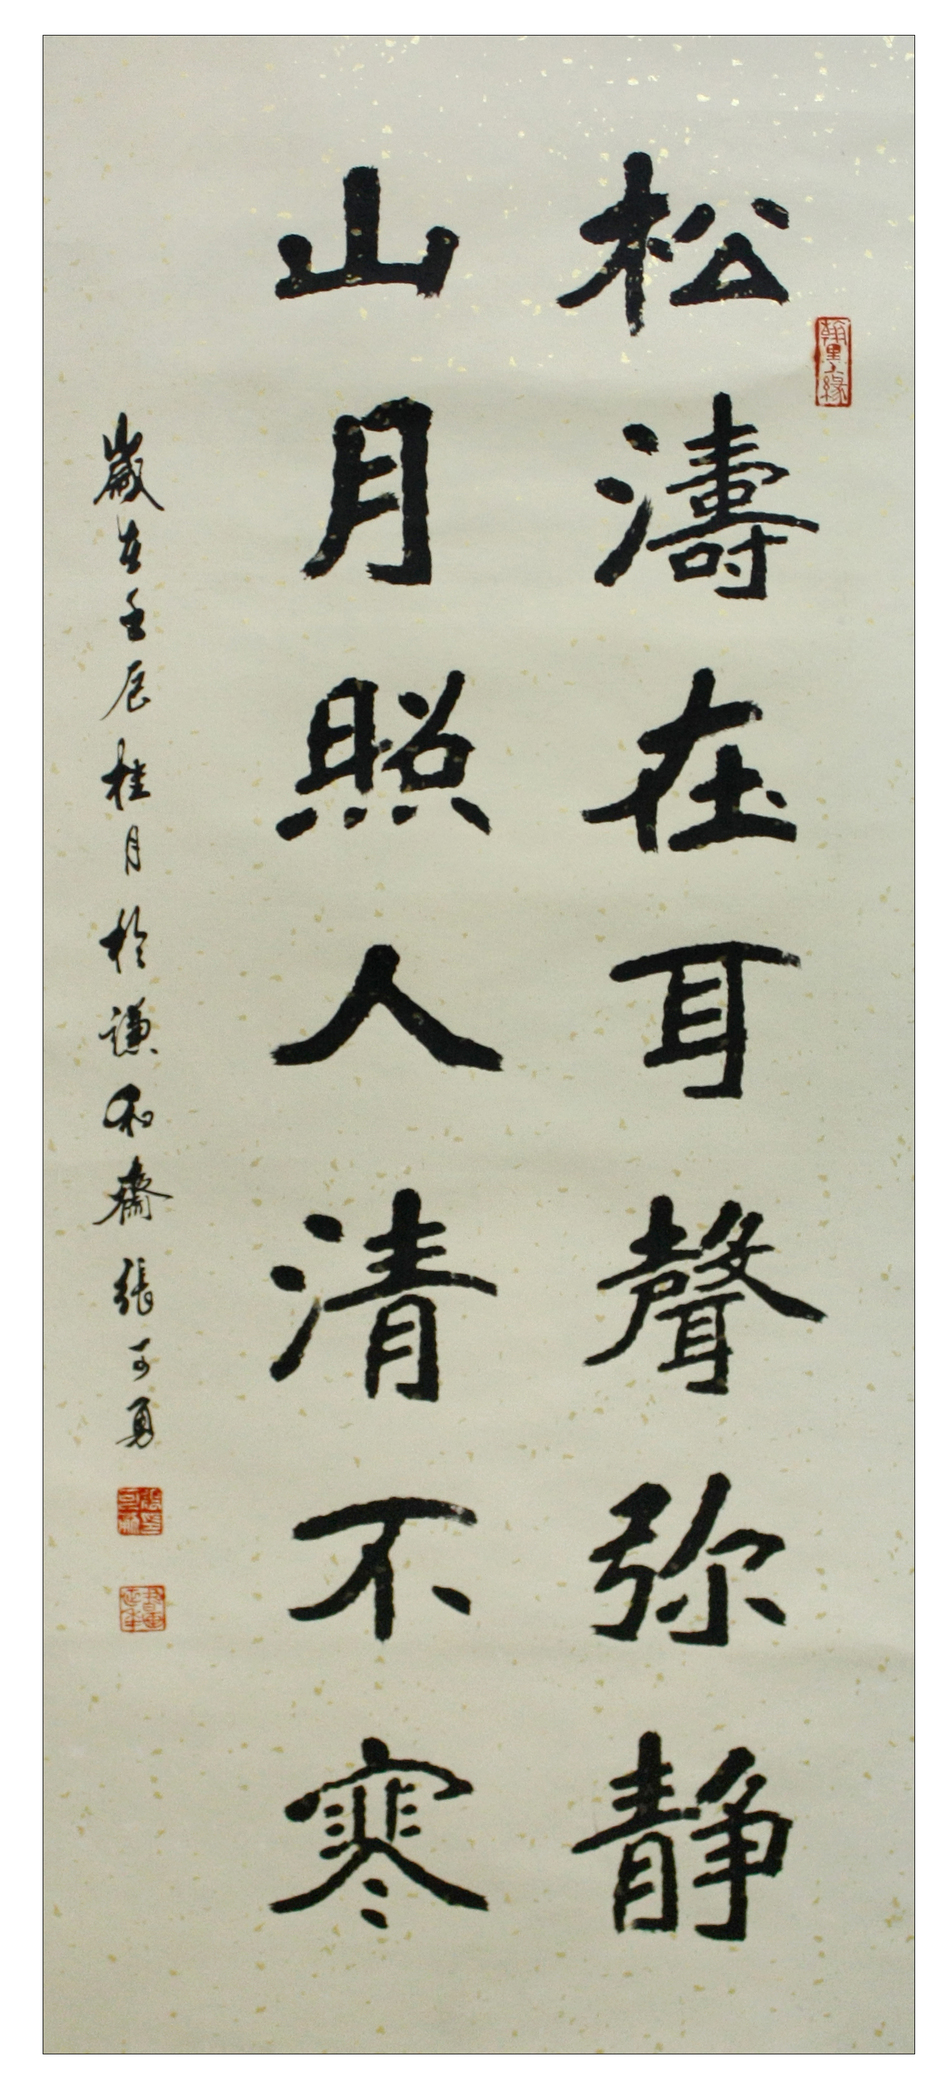 松濤在耳聲弥静
山月照人清不寒
歲在壬辰桂月於謙和齋張可勇
翰墨緣